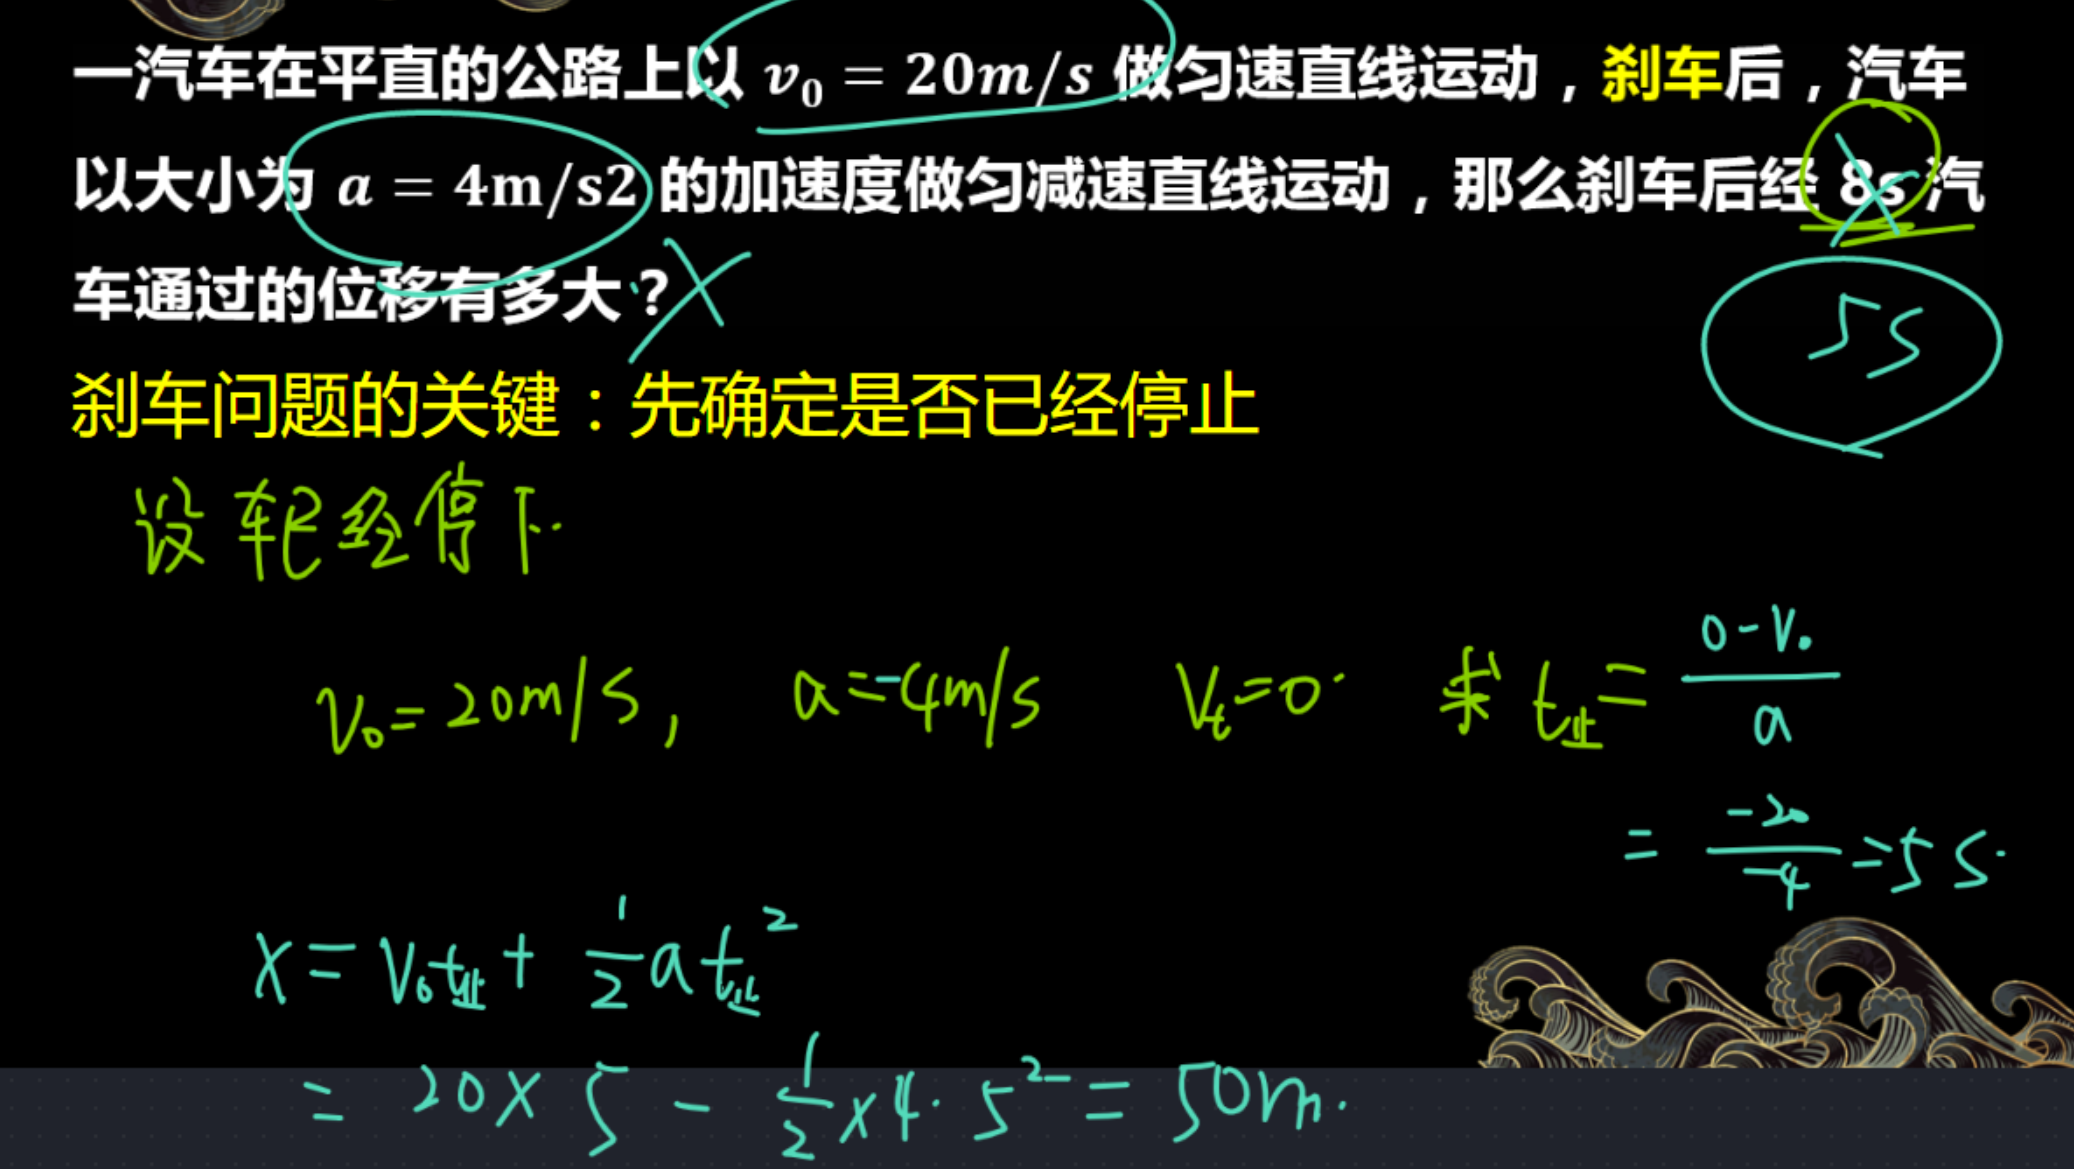 一汽车在平直的公路上以 v₀ = 20m/s 做匀速直线运动，刹车后，汽车
以大小为 a = 4m/s2 的加速度做匀减速直线运动，那么刹车后经 8s 汽
车通过的位移有多大？
5s
刹车问题的关键：先确定是否已经停止
设车已经停下.
v₀=20m/s, a=-4m/s Vt=0. 求 t止= (0-V₀)/a
= -20/-4 =5s.
x= V₀t止+ 1/2 a t止²
= 20×5 - 1/2 ×4·5² = 50m.